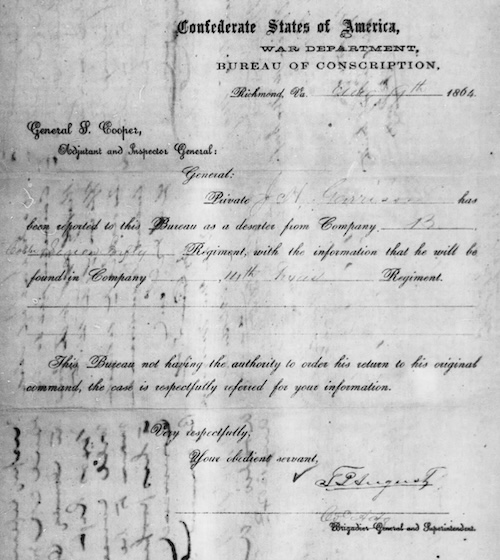 Confederate States of America,
WAR DEPARTMENT,
BUREAU OF CONSCRIPTION,
Richmond, Va. 1864
General S. Cooper,
Adjutant and Inspector General:
General:
Private H. Garrison has
been reported to this Bureau as a deserter from Company B
Regiment, with the information that he will be
found in Company Regiment.
This Bureau not having the authority to order his return to his original
command, the case is respectfully referred for your information.
Very respectfully,
Your obedient servant,
Brigadier General and Superintendent.